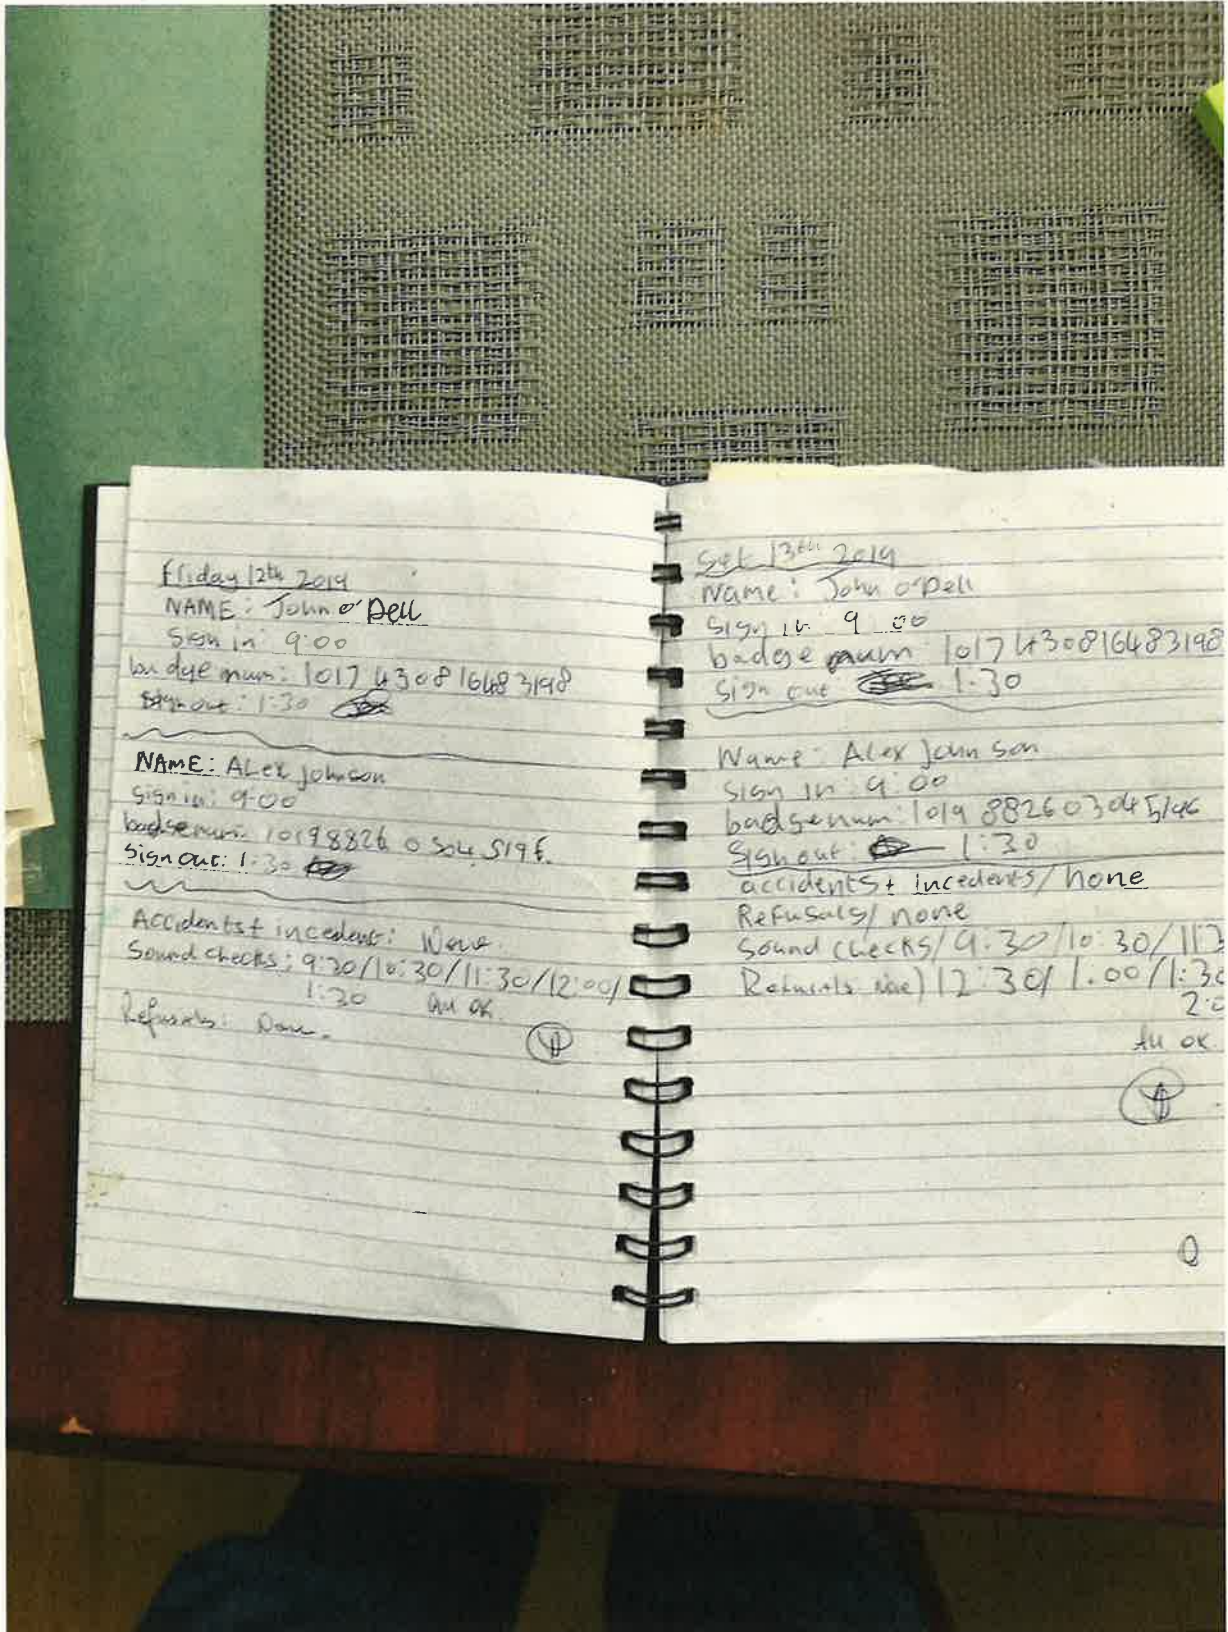 Friday 12th 2019
NAME: John o'Dell
Sign in: 9:00
badge num: 1017 4308 1648 3198
Sign out: 1:30
NAME: ALex Johnson
Sign in: 9:00
badge num: 10198826 0304 5196
Sign out: 1:30
Accidents + incedent: None
Sound checks: 9:30/10:30/11:30/12:00/
1:30 all ok
Refusals: None.
Sat 13th 2019
Name: John o'Dell
Sign in 9 00
badge num 1017 430816483198
Sign out 1:30
Name: Alex Johnson
Sign in: 9:00
badge num: 1019 882603045196
Sign out: 1:30
accidents + incedents/none
Refusals/none
Sound checks/9:30/10:30/11:3
12:30/1.00/1:30
All ok